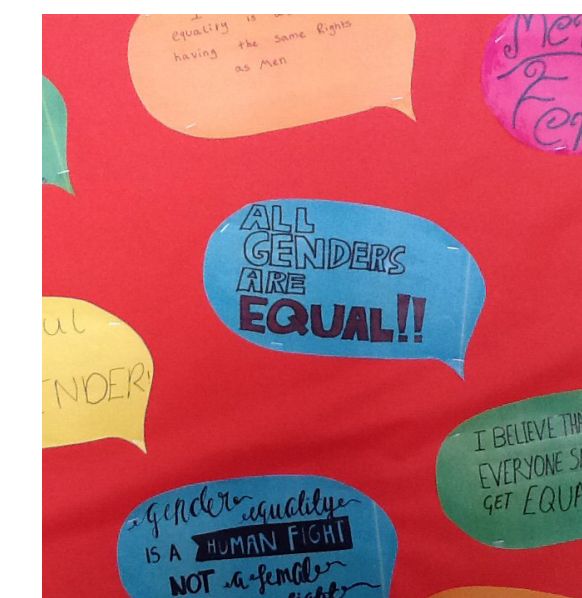 equality is
having the same Rights
as Men
ALL
GENDERS
ARE
EQUAL!!
ENDER!
I BELIEVE THA
EVERYONE
GET EQUA
gender equality
IS A HUMAN FIGHT
NOT a female